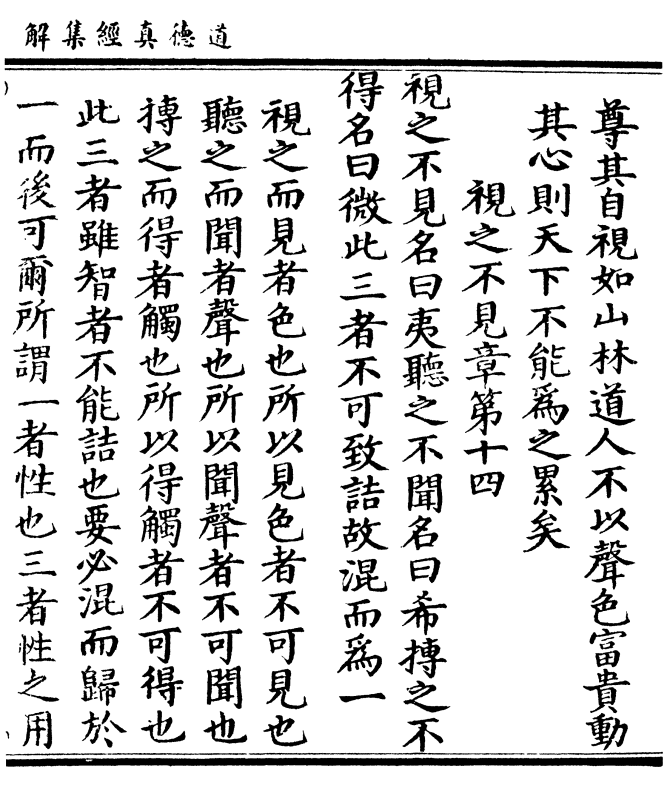 道德真經集解
尊其自視如山林道人不以聲色富貴動
其心則天下不能爲之累矣
視之不見章第十四
視之不見名曰夷聽之不聞名曰希搏之不
得名曰微此三者不可致詰故混而爲一
視之而見者色也所以見色者不可見也
聽之而聞者聲也所以聞聲者不可聞也
搏之而得者觸也所以得觸者不可得也
此三者雖智者不能詰也要必混而歸於
一而後可爾所謂一者性也三者性之用